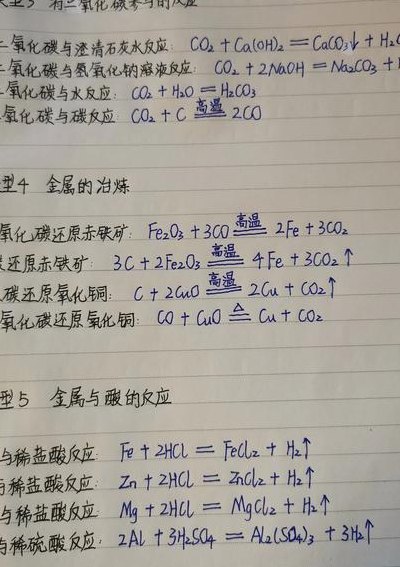 型3 有二氧化碳参与的反应
二氧化碳与澄清石灰水反应: CO₂ + Ca(OH)₂ = CaCO₃↓ + H₂O
二氧化碳与氢氧化钠溶液反应: CO₂ + 2NaOH = Na₂CO₃ +
氧化碳与水反应: CO₂ + H₂O = H₂CO₃
氧化碳与碳反应: CO₂ + C 高温 2CO
型4 金属的冶炼
氧化碳还原赤铁矿: Fe₂O₃ + 3CO 高温 2Fe + 3CO₂
还原赤铁矿: 3C + 2Fe₂O₃ 高温 4Fe + 3CO₂↑
碳还原氧化铜: C + 2CuO 高温 2Cu + CO₂↑
氧化碳还原氧化铜: CO + CuO △ Cu + CO₂
型5 金属与酸的反应
与稀盐酸反应: Fe + 2HCl = FeCl₂ + H₂↑
与稀盐酸反应: Zn + 2HCl = ZnCl₂ + H₂↑
与稀盐酸反应: Mg + 2HCl = MgCl₂ + H₂↑
与稀硫酸反应: 2Al + 3H₂SO₄ = Al₂(SO₄)₃ + 3H₂↑